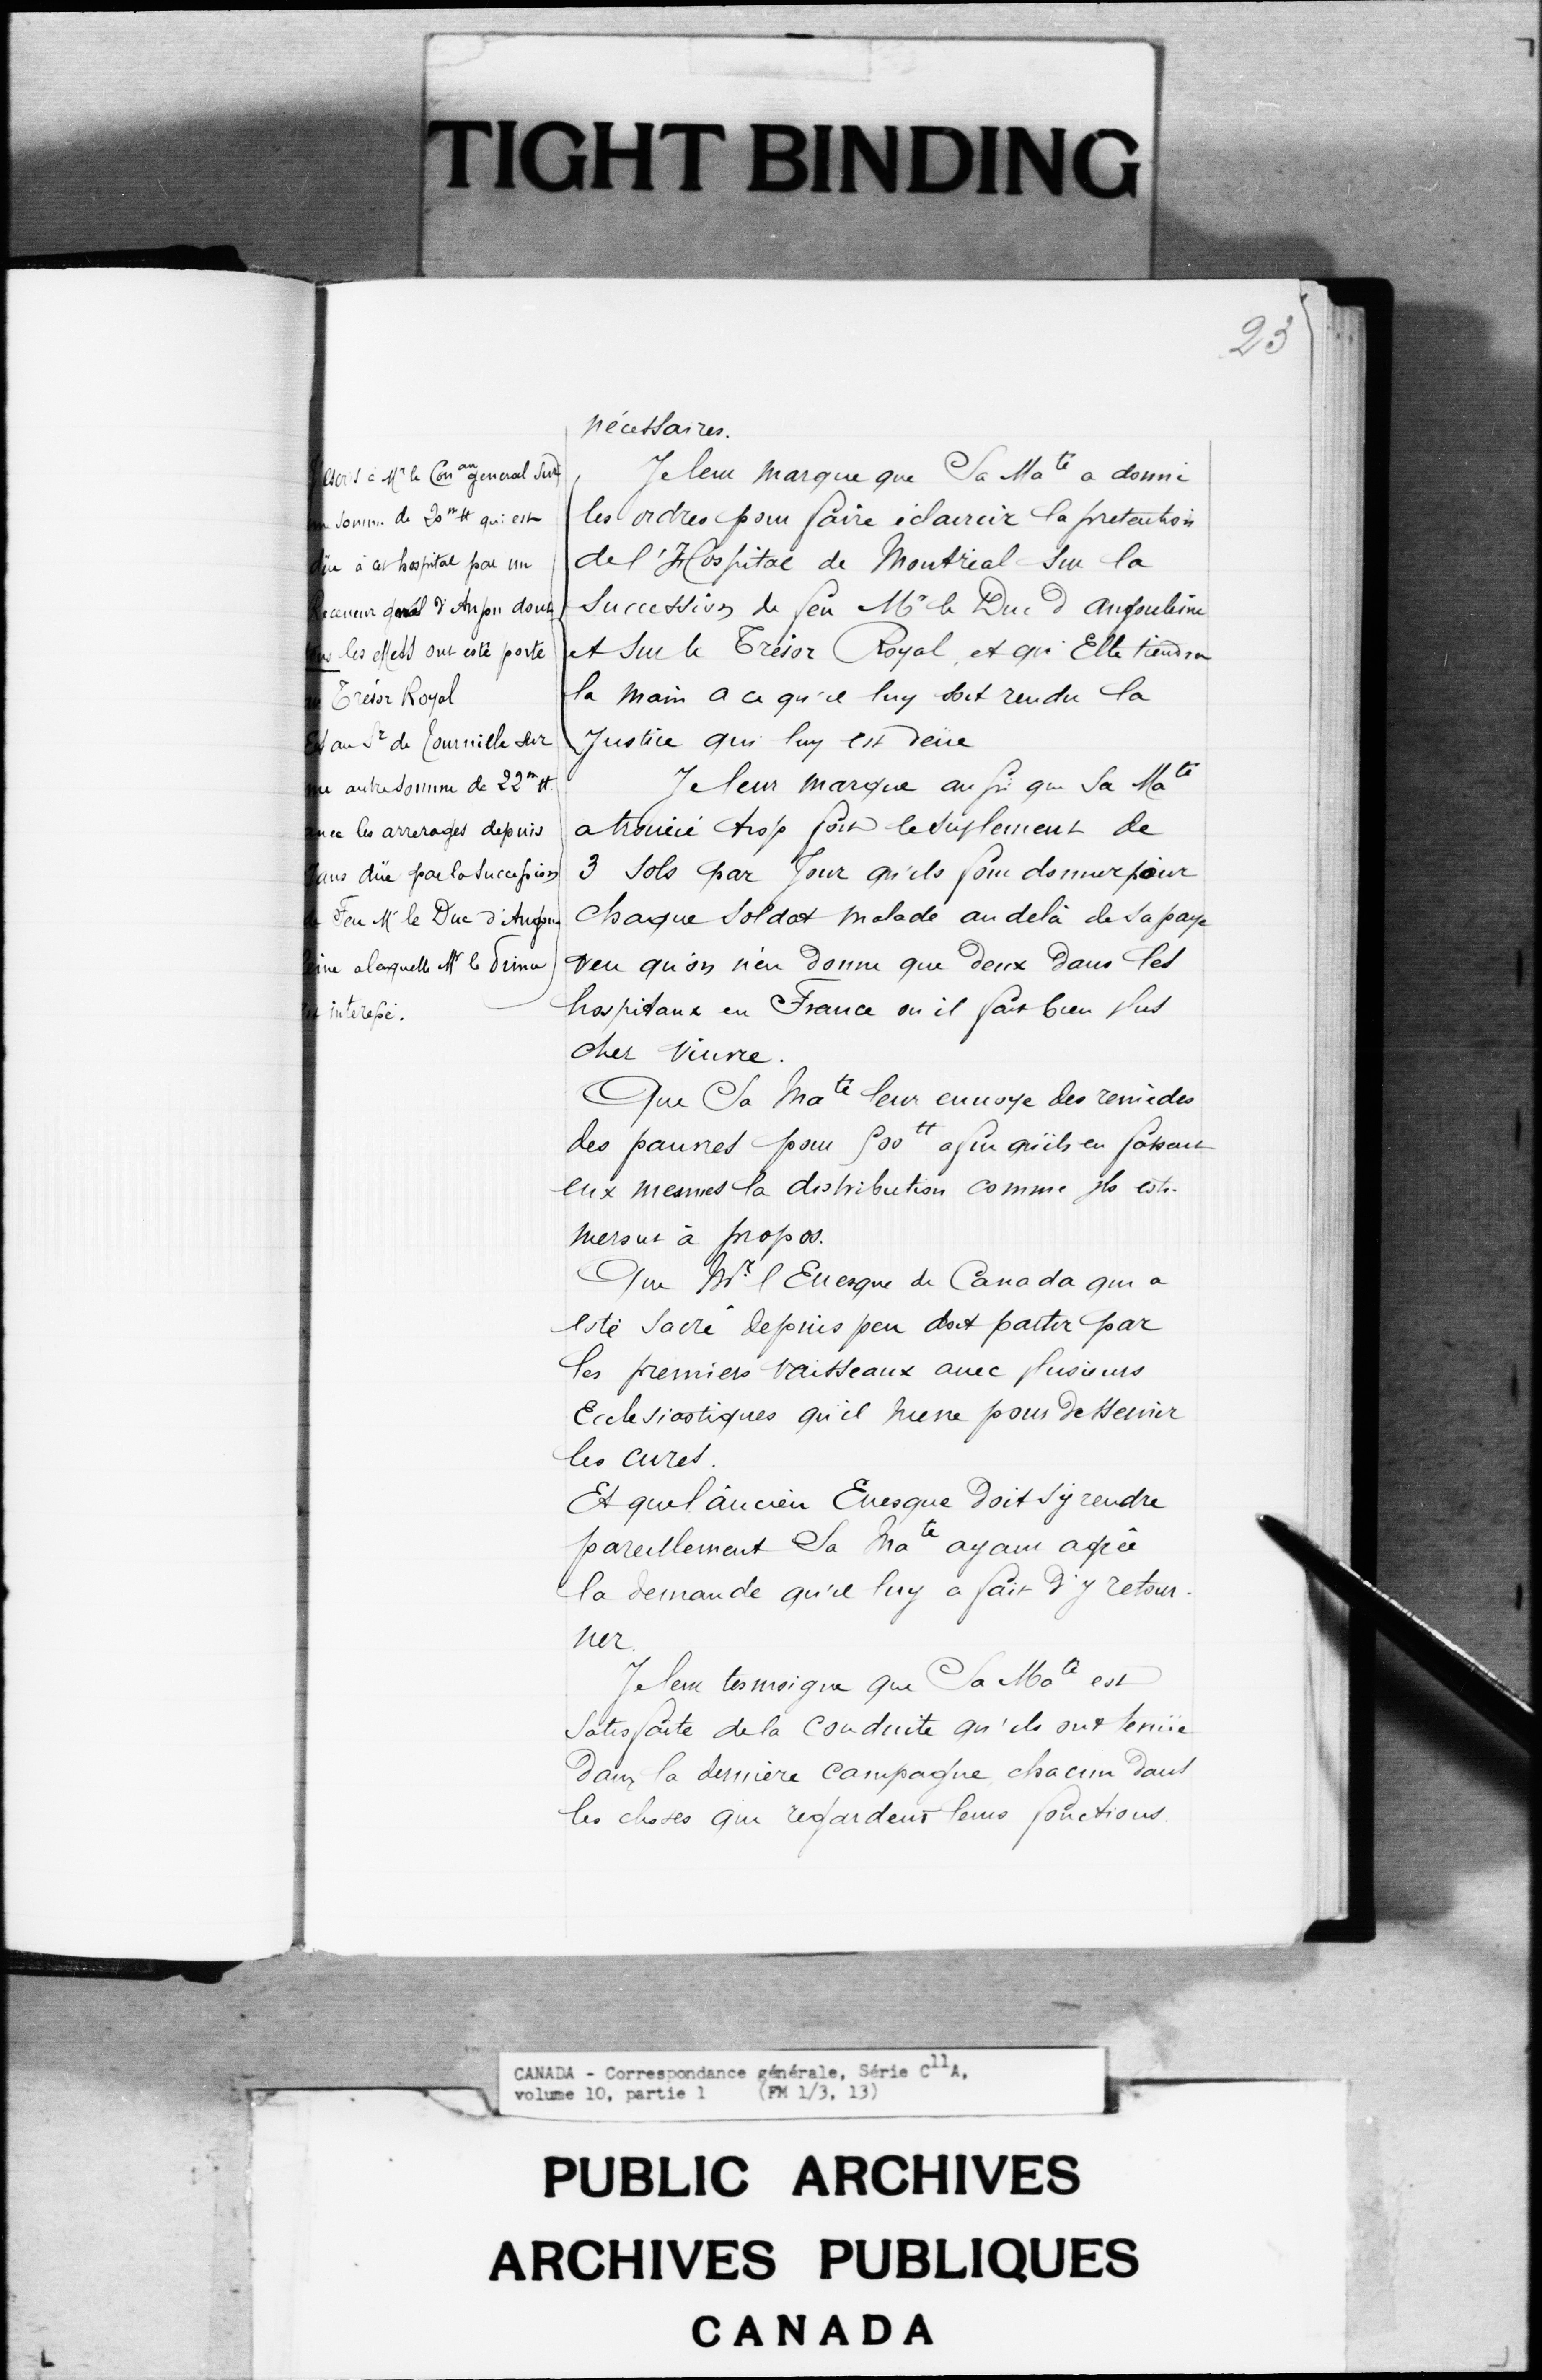 TIGHT BINDING
23
nécessaires.
Je leur marque que Sa Ma^té a donné
les ordres pour faire éclaircir la pretention
de l'Hospital de Montréal sur la
Succession de feu M^r le Duc d'angoulême
et sur le Trésor Royal, et qu'Elle tiendra
la main a ce qu'il luy soit rendu la
Justice qui luy est deüe
Je leur marque aussi que Sa Ma^té
a trouvé trop fort le suplement de
3 sols par Jour qu'ils font donner pour
chaque soldat malade au delà de sa paye
veu qu'on n'en donne que deux dans les
hospitaux en France ou il fait bien plus
cher viure.
Que Sa Ma^té leur enuoye des remèdes
des pauures pour 500^tt afin qu'ils en fassent
eux mesmes la distribution comme ils esti-
meront à propos.
Que M^r. l'Euesque de Canada qui a
esté sacré depuis peu doit partir par
les premiers vaisseaux auec plusieurs
Ecclesiastiques qu'il mene pour desseruir
les cures.
Et que l'ancien Euesque doit s'y rendre
pareillement Sa Ma^té ayant agréé
la demande qu'il luy a fait d'y retour-
ner.
Je leur tesmoigne que Sa Ma^té est
Satisfaite de la conduite qu'ils ont tenüe
dans la derniere campagne chacun dans
les choses qui regardent leurs fonctions.
J'escris à M^r le Con^au general sur
somme de 20^m tt qui est
düe à cet hospital par un
Receueur gnâl d'Anjou dont
tous les effets ont esté porté
au Trésor Royal
Et au S^r de Tourville sur
une autre somme de 22^m tt.
auec les arrerages depuis
ans düe par la succession
de Feu M^r le Duc d'Angou
leine a laquelle M^r le Prince
est interessé.
CANADA - Correspondance générale, Série C^11 A,
volume 10, partie 1 (FM 1/3, 13)
PUBLIC ARCHIVES
ARCHIVES PUBLIQUES
CANADA